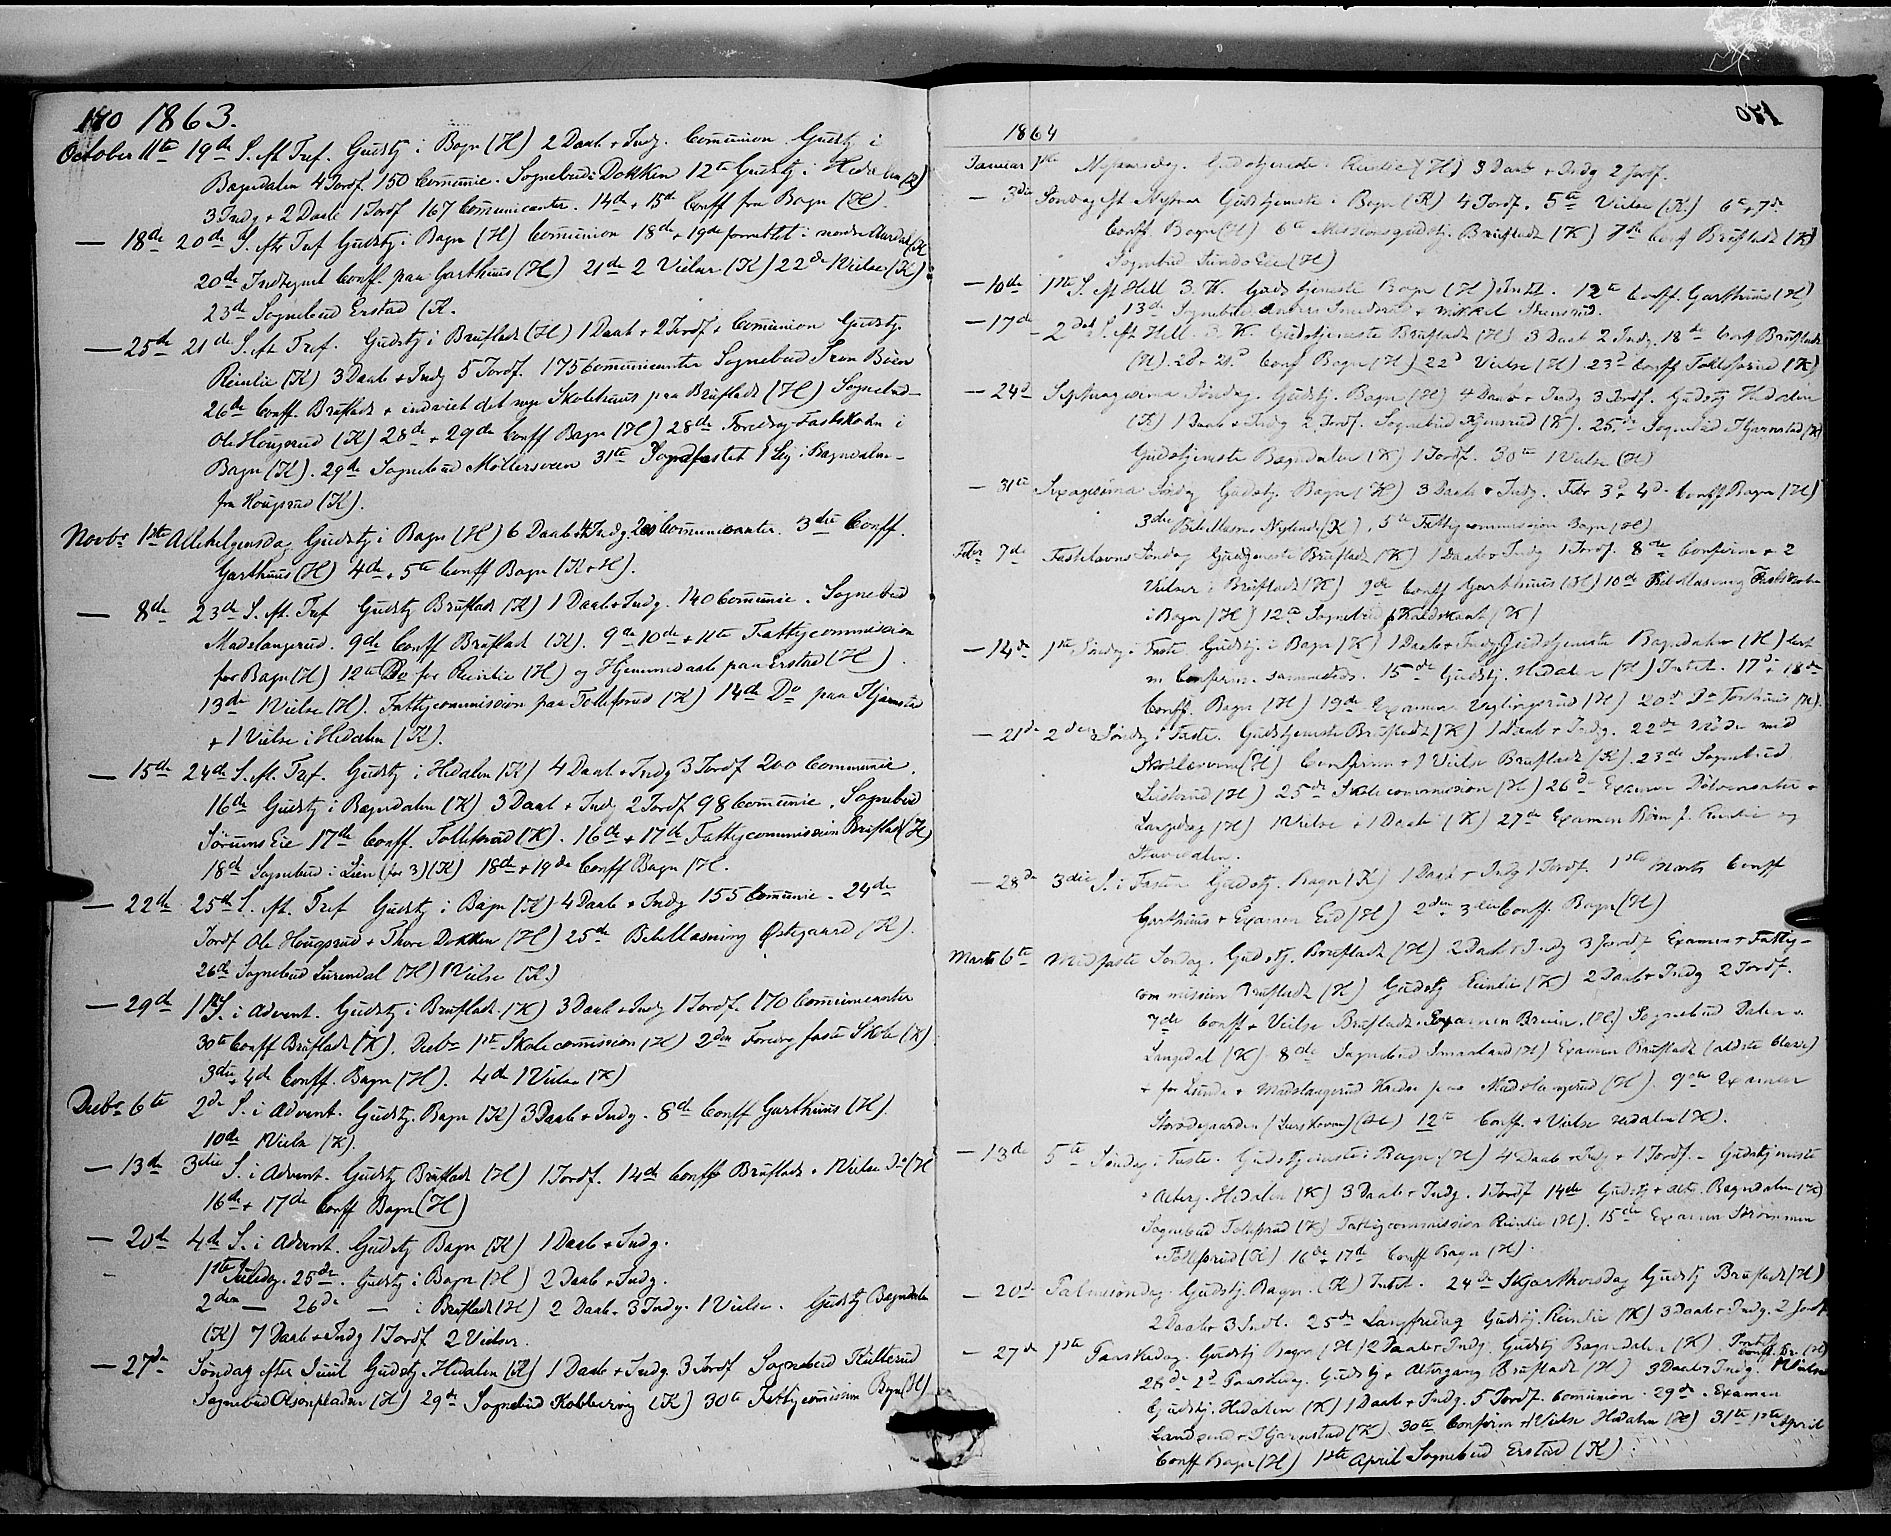 180 1863.
October 11te 19de S. eft Tref. Gudstj i Bagn (H) 2 Daab + Indg. Comunion Gudstj i
Bagndalen 4 Jordf. 150 Comunic. Sognebud Dokken 12te Gudstj i Hedalen (K)
3 Indg + 2 Daab 1 Jordf 167 Comunicanter. 14de + 15de Conff fra Bagn (H).
— 18de 20de S. eftr Tref Gudstj i Bagn (H) Comunion 18de + 19de forrettet i nordre Aurdal (H
20de Indtegnet Conff. paa Garthuus (H) 21de 2 Vielser (K) 22de 1 Vielse (K)
23de Sognebud Erstad (K.
— 25de 21de S. eft Tref. Gudstj i Brufladt (H) 1 Daab + 2 Jordf + Comunion Gudstj.
Reinlie (K) 3 Daab + Indg 5 Jordf. 175 Comunicanter Sognebud Bøen
26de Conff. Brufladt + indviet det nye Skolehuus paa Brufladt (H) Sognebud
Ole Hougsrud (K) 28de + 29de Conff Bagn (H) 28de Foredrag Fastskolen i
Bagn (K). 29de Sognebud Møllersveen 31te Jordfæstet 1 Lig i Bagndalen
fra Hougsrud (K).
Novbr 1ste Allehelgensdag Gudstj i Bagn (H) 6 Daab + Indg 200 Comunicanter. 3die Conff.
Garthuus (H) 4de + 5te Conff Bagn (K + H).
— 8de 23de S. eft. Tref Gudstj Brufladt (K) 1 Daab + Indg. 140 Comunic. Sognebud
Madslangrud. 9de Conff Bruflad (K). 9de 10de + 11te Fattigcommission
for Bagn (H) 12te Do for Reinlie (H) og Hjemmedaab paa Erstad (H)
13de 1 Vielse (H). Fattigcommission paa Tollefsrud (K) 14de Do paa Hjarnstad
+ 1 Vielse i Hedalen (K).
— 15de 24de S. eft. Tref. Gudstj i Hedalen (K) 4 Daab + Indg 3 Jordf 200 Comunic.
16de Gudstj i Bagndalen (K) 3 Daab + Indg 2 Jordf 98 Comunic. Sognebud
Sørums Eie 17de Conff. Tollefsrud (K). 16de + 17de Fattigcommission Bruflad (H)
18de Sognebud i Lien (for 3) (K) 18de + 19de Conff Bagn (H.
— 22de 25de S. eft. Tref Gudstj i Bagn (K) 4 Daab + Indg 155 Comunic. 24de
Jordf Ole Hougsrud + Thore Dokken (H) 25de Bibellæsning Østegaard (K).
26de Sognebud Surendal (H) 1 Vielse (K)
— 29de 1ste S. i Advent. Gudstj i Brufladt (K) 3 Daab + Indg 1 Jordf. 170 Comunicanter
30te Conff Brufladt (K). Decbr 1ste Skolecomission (H) 2den Foredrag faste Skole (K)
3die + 4de Conff. Bagn (H). 4de 1 Vielse (K)
Decbr 6te 2de S. i Advent. Gudstj Bagn (K) 3 Daab + Indg. 8de Conff Garthuus (H).
10de 1 Vielse (K).
— 13de 3die S. i Advent. Gudstj Brufladt (H) 1 Jordf. 14de Conff Bruflad + 1 Vielse Do (H
16de + 17de Conff Bagn (H)
— 20de 4de S. i Advent. Gudstj Bagn (K) 1 Daab + Indg.
1ste Juledag. 25de. Gudstj i Bagn (H) 2 Daab + Indg.
2den — 26de — i Bruflad (H) 2 Daab + 3 Indg. 1 Vielse. Gudstj Bagndalen
(K) 7 Daab + Indg 1 Jordf 2 Vielser.
— 27de Søndag efter Juul Gudstj. Hedalen (K) 1 Daab + Indg. 3 Jordf Sognebud
Sognebud (H) 29de Sognebud (K) 30te Fattigcomission Bagn (H)
1864
Januar 1ste Nytaarsdag. Gudstjeneste i Reinlie (H) 3 Daab + Indg 2 Jordf.
— 3die Søndag eft Nytaar Gudstjeneste i Bagn (K) 4 Jordf. 5te Vielse (K) 6te + 7de
Conff Bagn (H) 6te Missionsgudstj. Bruflad (K) 7de Conf Bruflad (K)
Sognebud (H)
— 10de 1ste S. eft Hell 3 K. Gudstjeneste Bagn (H) 12te Conff. Garthuus (H)
13de Sognebud + Mikkel
— 17de 2den S. eft Hell. 3 K Gudstjeneste Bruflad (H) 3 Daab 2 Indg. 18de Conf Bruflad
(H). 20 + 21de Conf Bagn (H) 22de Vielse (H). 23de Conff Tollefsrud (K)
— 24de Septuagesima Søndag. Gudstj. Bagn (H) 4 Daab + Indg 3 Jordf. Gudstj Hedalen
(K) 1 Daab + Indg 2 Jordf. Sognebud (K). 25de Sognebud Hjarnstad (K)
Gudstjeneste Bagndalen (K) 1 Jordf. 30te 1 Vielse (H)
— 31te Sexagesima Søndag Gudstj. Bagn (H) 3 Daab + Indg. Febr 3de + 4de Conff Bagn (H)
3die Bibellæsn Nylende (K). 5te Fattigcommission Bagn (H)
Febr 7de Fastelavns Søndag Gudstjeneste Bruflad (K) 1 Daab + Indg 1 Jordf. 8de Confirm + 2
Vielser i Bruflad (K) 9de Conff Garthuus (H) 10de Bibellæsning Fastskolen
i Bagn (H) 12te Sognebud (K)
— 14de 1ste Søndag i Faste. Gudstj. i Bagn (K) 1 Daab + Indg Gudstjeneste Bagndalen (H) 
m Confirm. sammesteds. 15de Gudstj. Hedalen (H) 17de + 18de
Conff. Bagn (H) 19de Examen (H) 20de Do (H).
— 21de 2den Søndag i Faste. Gudstjeneste Bruflad (K) 1 Daab + Indg. 22de Møde med
Skolelærerne (H) Confirm + 1 Vielse Bruflad (K). 23de Sognebud
(H) 25de Skolecommission (H) 26de Examen +
(H) 1 Vielse + 1 Daab (K) 27de Examen Reinlie og
— 28de 3die S. i Fasten Gudstj. Bagn (K) 1 Daab + Indg 1 Jordf. 1ste Marts Conff
Garthuus + Examen Eid (H) 2den + 3die Conff. Bagn (H)
Marts 6te Midfaste Søndag. Gudstj. Bruflad (H) 2 Daab + Indg 3 Jordf Examen + Fattig-
commission Bruflad (H) Gudstj Reinlie (K) 2 Daab + Indg 2 Jordf.
7de Conff + Vielse Bruflad. Examen (H) Sognebud Dalen +
(K) 8de Sognebud (H) Examen Bruflad (ældste Classe)
+ for Lunde + Madslangrud Kredse paa Madslangrud (H). 9de Examen
(H) 12te Conff. + Vielse Hedalen (K).
— 13de 5te Søndag i Faste. Gudstjeneste i Bagn (H) 4 Daab + Indg + 1 Jordf. — Gudstjeneste
+ Alterg. Hedalen (K) 3 Daab + Indg. 1 Jordf 14de Gudstj + Altg. Bagndalen (K)
Sognebud Tollefsrud (K) Fattigcommission Reinlie (H). 15de Examen Strømmen
+ Tollefsrud (K) 16de + 17de Conff Bagn (H).
— 20de Palmesøndag. Gudstj. Bagn. (K) 24de Skjærthorsdag Gudstj Bruflad (H)
2 Daab + 3 Indl. 25de Langfredag Gudstj. Reinlie (K) 3 Daab + Indg. 2 Jordf
— 27de 1ste Paaskedag. Gudstj Bagn (H) 2 Daab + Indg. Gudstj Bagndalen (K)
28de 2d Paaskedag. Gudstj + Altergang Bruflad (H) 3 Daab + Indg.
Gudstj. Hedalen (K) 1 Daab + Indg. 5 Jordf. Comunion. 29de. Examen
+ Hjarnstad (K) 30te Confirm + 1 Vielse Hedalen (K) 31te 1ste April
Conff Bagn (H) 1ste April Sognebud Erstad (K)